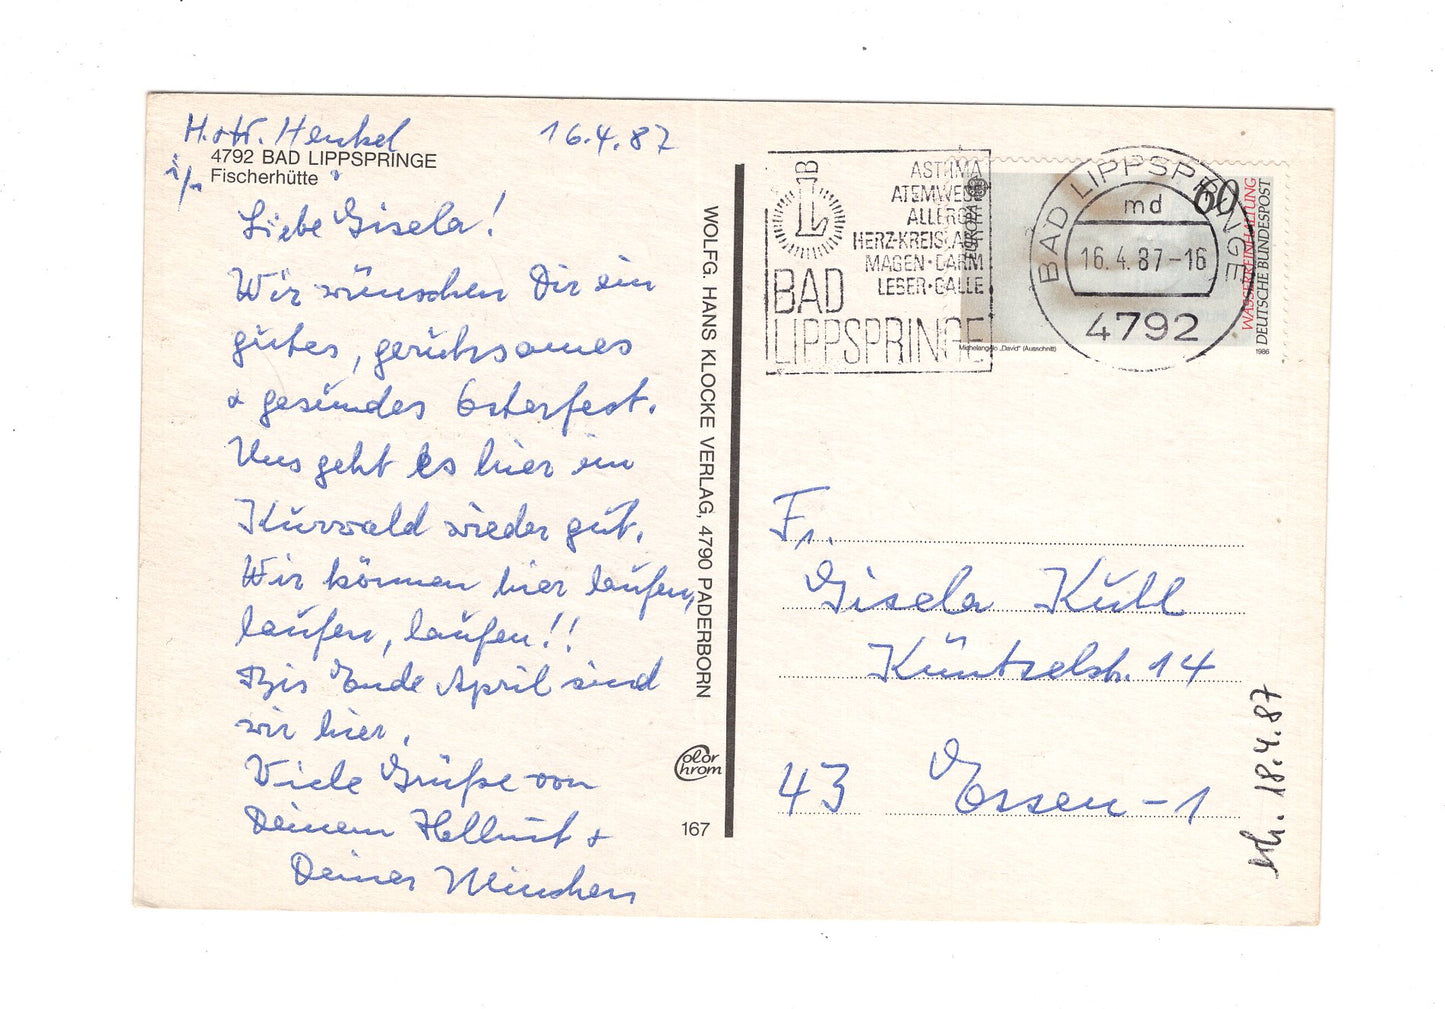 H. + Fr. Henkel 16.4.87
4792 BAD LIPPSPRINGE
Fischerhütte
Liebe Gisela!
Wir wünschen Dir ein
gutes, geruhsames
+ gesundes Osterfest.
Uns geht es hier im
Kurwald wieder gut.
Wir können hier laufen,
laufen, laufen!!
Bis Ende April sind
wir hier.
Viele Grüße von
Deinem Hellmut +
Deiner
WOLFG. HANS KLOCKE VERLAG, 4790 PADERBORN
Color Chrom
167
B
L
ASTHMA
ATEMWEGE
ALLERGIE
HERZ-KREISLAUF
MAGEN·DARM
LEBER·GALLE
BAD
LIPPSPRINGE
EUROPA
60
WASSERREINHALTUNG
DEUTSCHE BUNDESPOST
Michelangelo „David“ (Ausschnitt)
1986
BAD LIPPSPRINGE
md
16.4.87-16
4792
Fr.
Gisela Kull
Küntzelstr. 14
43 Essen-1
18.4.87